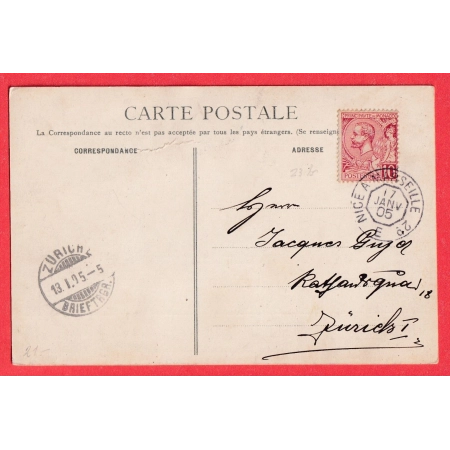 CARTE POSTALE
La Correspondance au recto n'est pas acceptée par tous les pays étrangers. (Se renseign
CORRESPONDANCE
ADRESSE
10
NICE A MARSEILLE
17
JANV
05
E
ZÜRICH
19. I. 05-5
BRIEFTRGR.
Herrn
Jacques
Rathausquai 18
Zürich I
21-